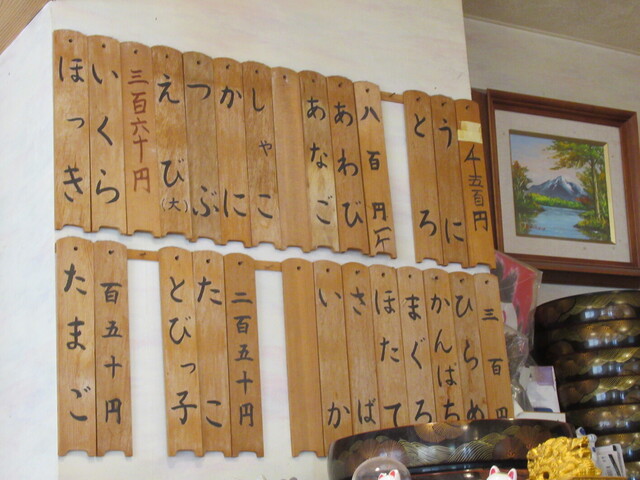 千五百円
うに
とろ
八百円
あわび
あなご
しゃこ
かに
つぶ
えび(大)
三百六十円
いくら
ほっき
三百円
ひらめ
かんぱち
まぐろ
ほたて
さば
いか
二百五十円
たこ
とびっ子
百五十円
たまご